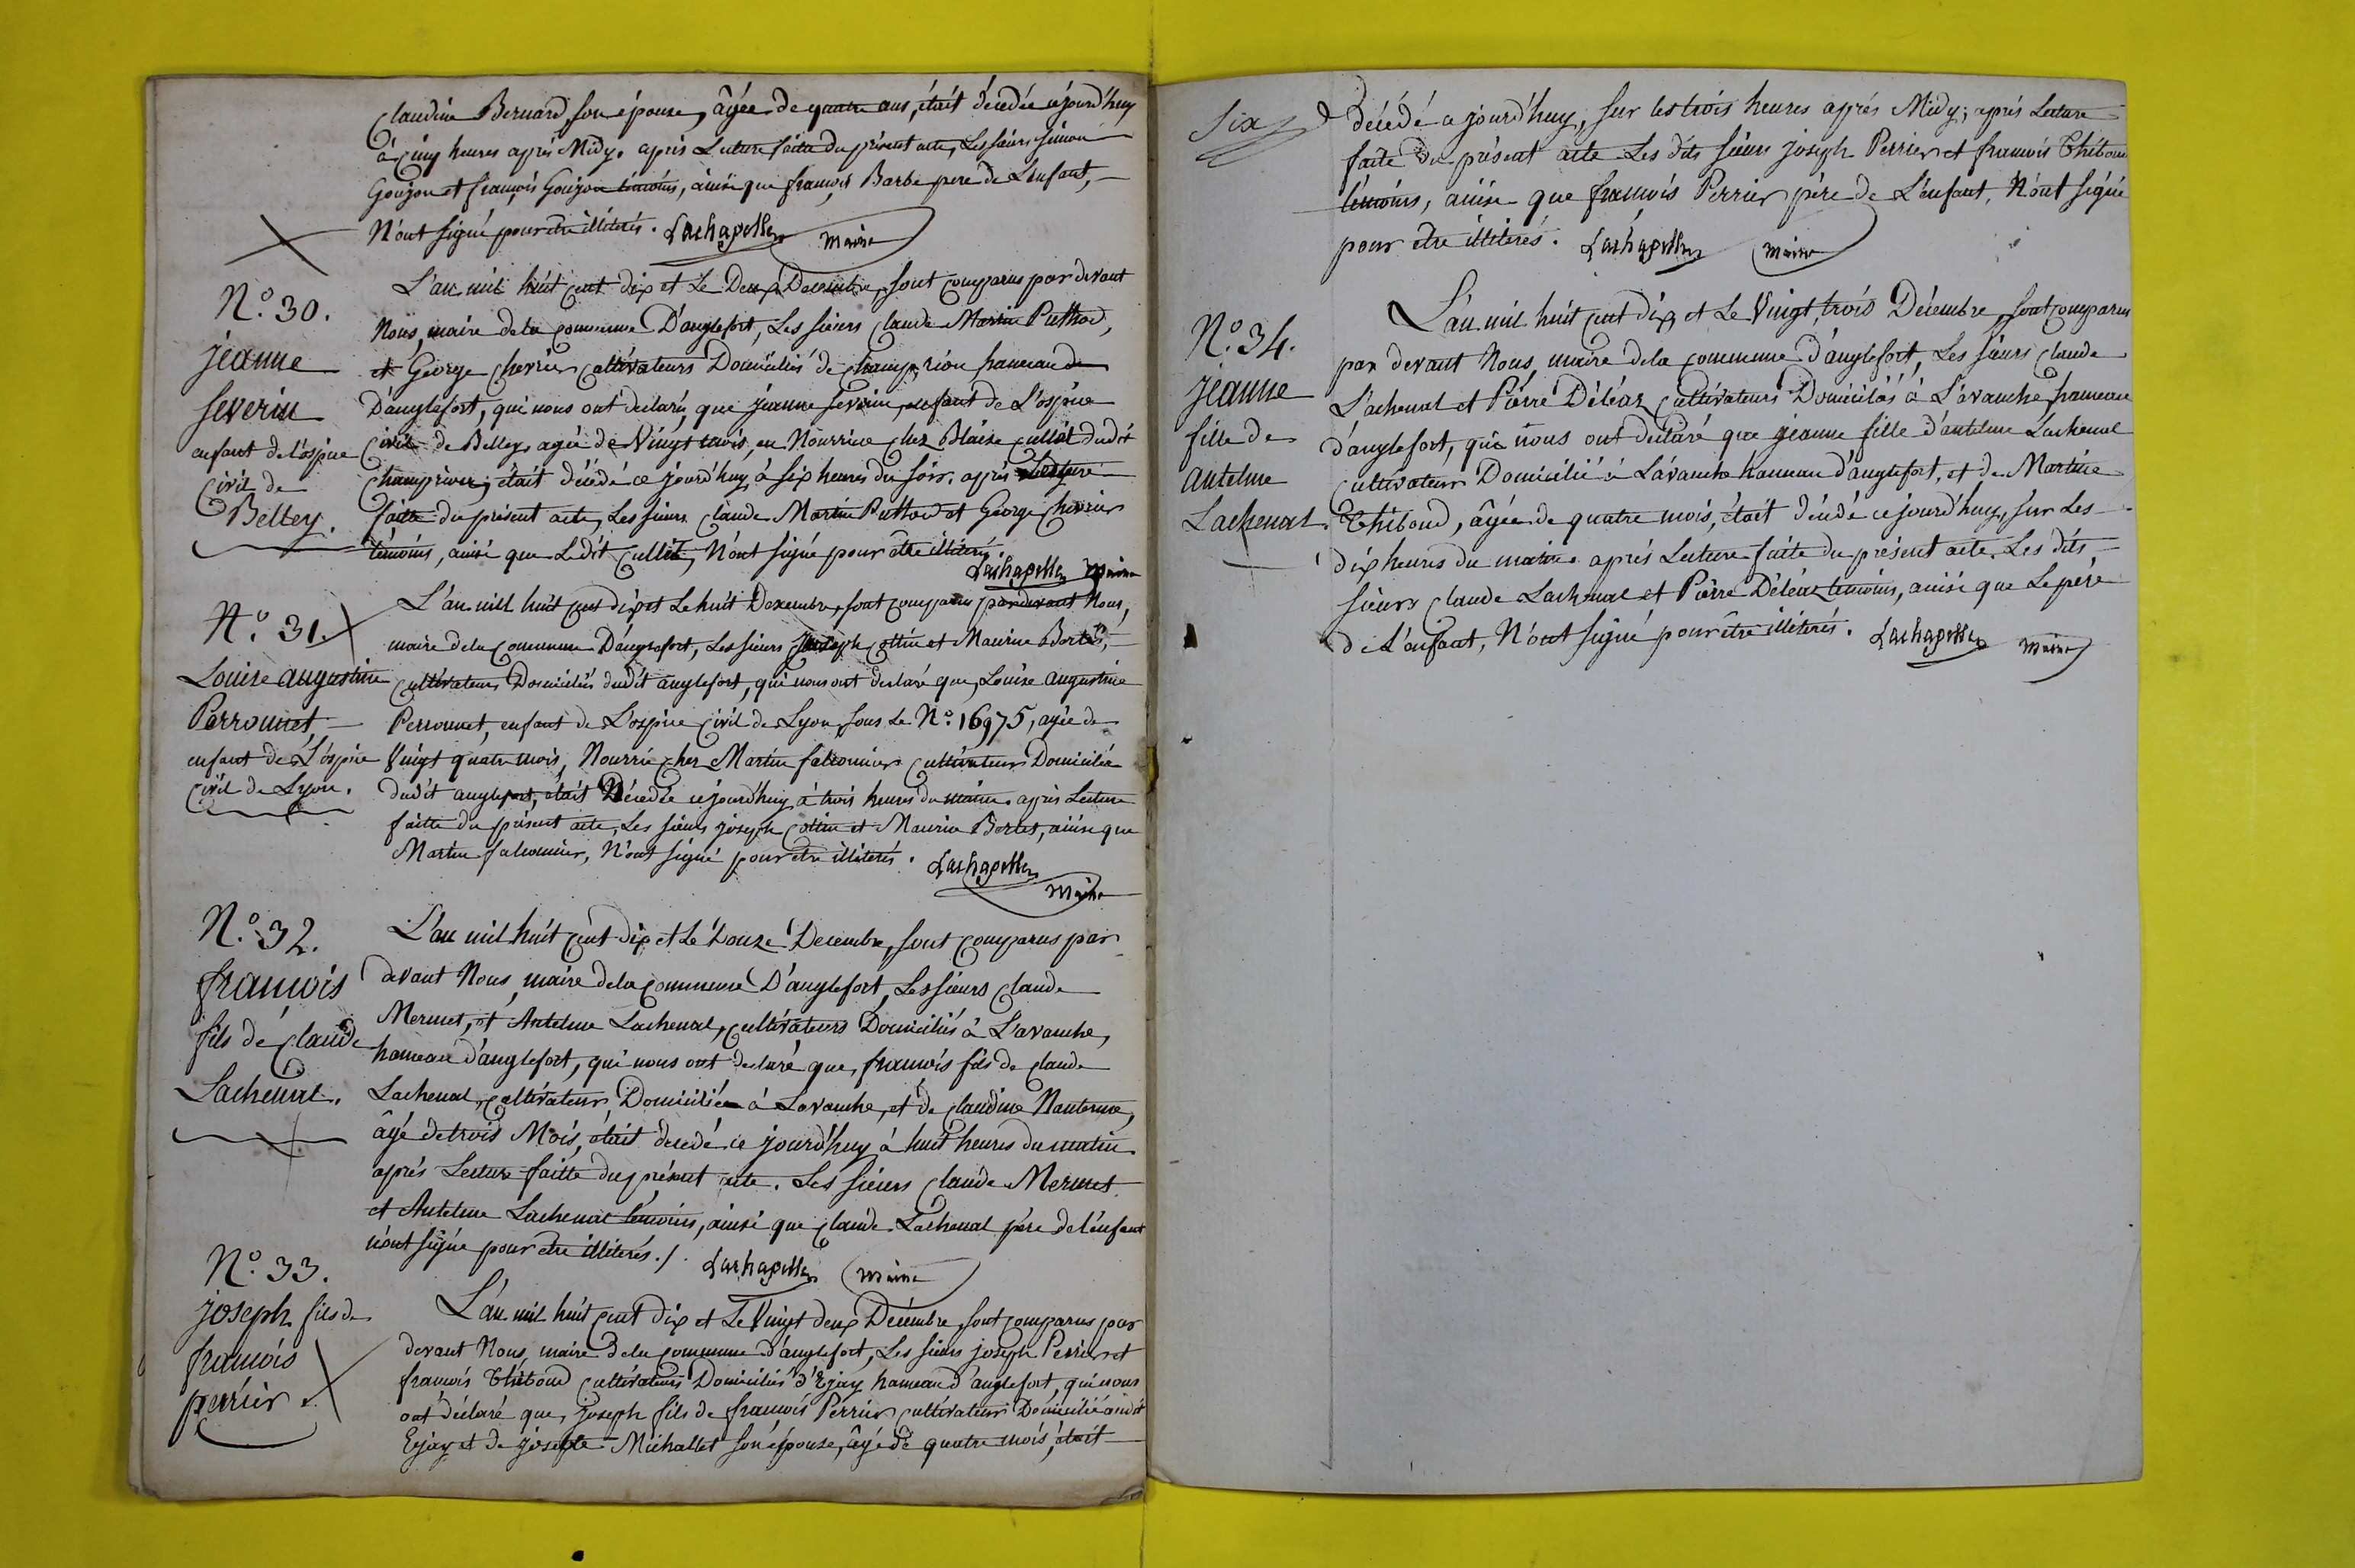 Claudine Bernard, son épouse, âgée de quatre ans, était décedée cejourd'huy
à cinq heures après Midy. après Lecture faite du présent acte, Les sieurs simon
Goujon et françois Goujon témoins, ainsi que françois Barbe pere de L'enfant,
N'ont signé pour être illiterés. Lachapelle maire
N.º 30.
jeanne
severin
enfant de l'ospice
Civil de
Belley.
L'an mil huit cent dix et Le Deux Decembre, sont comparus par devant
Nous, maire de la commune D'anglefort, Les sieurs Claude Martin Puthod,
et George Chevrier cultivateurs Domiciliés de champrion hameau de
D'anglefort, qui nous ont declaré, que jeanne severin, enfant de L'ospice
Civil de Belley, agée de Vingt mois, en Nourrice chez Blaise Cullet dudit
Champrion, était décédé ce jourd'huy à six heures du soir. après Lecture
faitte du présent acte, Les sieurs Claude Martin Puthod et George Chevrier
témoins, ainsi que Ledit Cullet, N'ont signé pour être illiterés.
Lachapelle maire
N.º 31.
Louise augustine
Perrounet,
enfant de L'ospice
Civil de Lyon.
L'an mill huit cent dix et Le huit Decembre, sont comparus pardevant Nous,
maire de la commune D'anglefort, Les sieurs joseph Cottin et Maurice Bortet,
cultivateurs Domiciliés dudit anglefort, qui nous ont declaré que, Louise augustine
Perrounet, enfant de L'ospice Civil de Lyon, sous Le N.º 16975, agée de
Vingt quatre mois, Nourrie chez Martin falconnier cultivateur Domicilié
dudit anglefort, était Décedée cejourd'huy à trois heures du matin. après Lecture
faitte du présent acte, Les sieurs joseph Cottin et Maurice Bortet, ainsi que
Martin falconnier, N'ont signé pour être illiterés. Lachapelle
maire
N.º 32.
francois
fils de Claude
Lachenal.
L'an mil huit cent dix et Le Douze Decembre, sont comparus par
devant Nous, maire de la commune D'anglefort, Les sieurs Claude
Mermet, et Antelme Lachenal, cultivateurs Domiciliés à L'avanche,
hameau d'anglefort, qui nous ont declaré que, francois fils de Claude
Lachenal, cultivateur Domicilié à Lavanche, et de Claudine Nanterme,
âgé de trois Mois, était decedé ce jourd'huy à huit heures du matin.
après Lecture faitte du présent acte. Les sieurs Claude Mermet
et Antelme Lachenal témoins, ainsi que Claude Lachenal père de l'enfant
n'ont signé pour être illiterés./. Lachapelle maire
N.º 33.
joseph fils de
francois
perrier
L'an mil huit cent dix et Le Vingt deux Décembre, sont comparus par
devant Nous, maire de la commune d'anglefort, Les sieurs joseph Perrier et
francois Thiboud cultivateurs Domiciliés d'Ejay hameau d'anglefort, qui nous
ont déclaré que, joseph fils de francois Perrier cultivateur Domicilié audit
Ejay et de josepte Michallet son épouse, âgé de quatre mois, était
Six
décédé ce jourd'huy, sur les trois heures après Midy; après Lecture
faite du présent acte Les dits sieurs joseph Perrier et francois Thiboud
témoins, ainsi que francois Perrier père de L'enfant, N'ont signé
pour être illiterés. Lachapelle maire
N.º 34.
jeanne
fille de
antelme
Lachenal.
L'an mil huit cent dix, et Le Vingt trois Décembre, sont comparus
par devant Nous, maire de la commune d'anglefort, Les sieurs Claude
Lachenal et Piérre Déléaz Cultivateurs Domiciliés à L'avanche, hameau
d'anglefort, qui nous ont déclaré que jeanne fille d'antelme Lachenal
Cultivateur Domicilié à Lavanche hameau d'anglefort, et de Martine
Thiboud, âgée de quatre mois, était décédé cejourd'huy, sur Les
dix heures du matin. après Lecture faite du présent acte. Les dits
sieurs Claude Lachenal et Piérre Déléaz témoins, ainsi que Le père
de L'enfant, N'ont signé pour être illiterés. Lachapelle maire